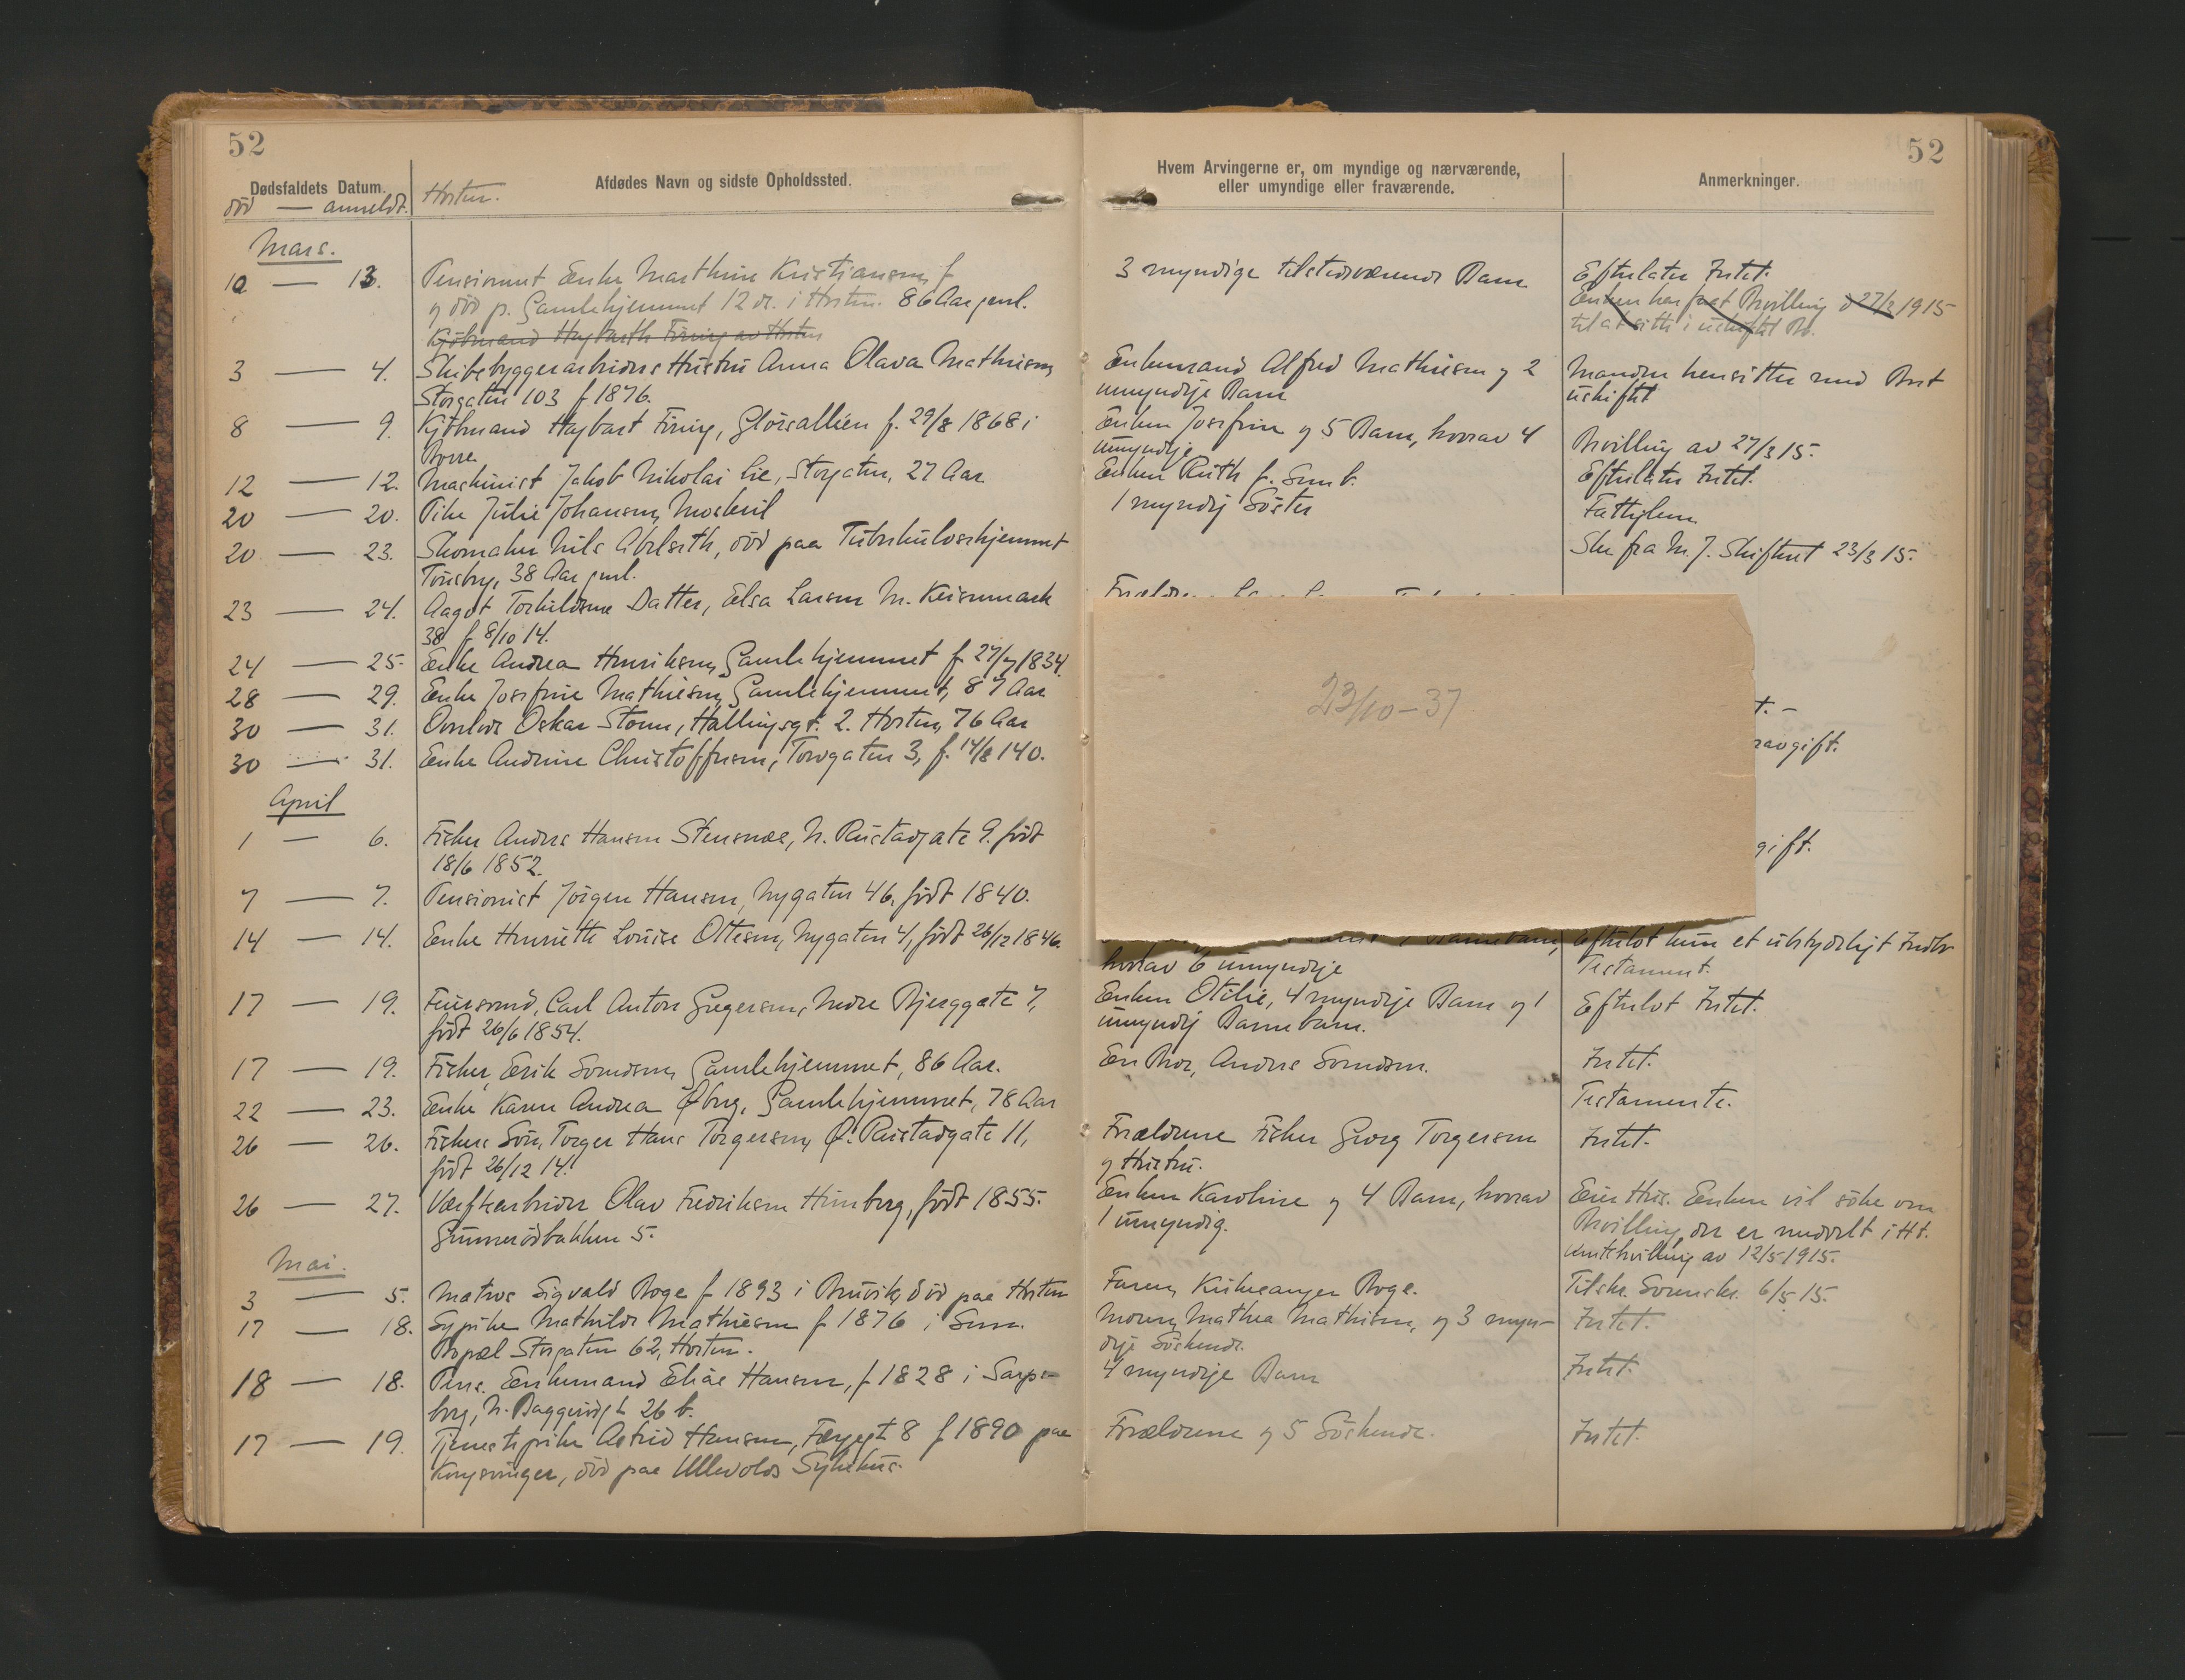 52
Dødsfaldets Datum.
død — anmeldt.
Horten.
Afdødes Navn og sidste Opholdssted.
Mars.
10 — 13. Pensionert Enke Marthine Kristiansen, f
og död p. Gamlehjemmet 12 ds. i Horten. 86 Aar gml.
Kjöbmand Hagbarth Föring av Horten
3 — 4. Skibsbyggerarbeiders Hustru Anna Olava Mathisen
Storgaten 103 f 1876.
8 — 9. Kjöbmand Hagbart Föring, f. 29/8 1868 i
Borre
12 — 12. Maskinist Jakob Nikolai Lie, Storgaten, 27 Aar
20 — 20. Pike Julie Johansen,
20 — 23. Skomaker Nils Abelseth, död paa Tuberkulosehjemmet
Tönsberg, 38 Aar gml.
23 — 24. Aagot Torkildsens Datter, Elsa Larsen N. Keisemark
38 f 8/10 14.
24 — 25. Enke Andrea Henriksen, Gamlehjemmet f 27/7 1834.
28 — 29. Enke Josefine Mathiesen, Gamlehjemmet, 87 Aar
30 — 31. Oskar Storm, Hallingsgt. 2. Horten, 76 Aar
30 — 31. Enke Andrine Christoffersen, Torvgaten 3, f. 14/8 140.
April
1 — 6. Fisker Anders Hansen Stensnæs, N. Rustadgate 9. födt
18/6 1852.
7 — 7. Pensionist Jörgen Hansen, Nygaten 46, födt 1840.
14 — 14. Enke Henriette Louise Ottesen, Nygaten 4, födt 26/12 1846.
17 — 19. Carl Anton Gregersen, Nedre Bjerggate 7,
födt 26/6 1854.
17 — 19. Fisker, Erik Svendsen, Gamlehjemmet, 86 Aar.
22 — 23. Enke Karen Andrea Öberg, Gamlehjemmet, 78 Aar
26 — 26. Fiskers Sön, Torger Hans Torgersen, Ö. Rustadgate 11,
födt 26/12 14.
26 — 27. Værftsarbeider Olav Fredriksen Himberg, födt 1855.
Gunnerödbakken 5.
Mai.
3 — 5. Matros Sigvald Boge f 1893 i Bruvik, död paa Horten
17 — 18. Sypike Mathilde Mathiesen f 1876 i Sem.
Bopæl Storgaten 62, Horten.
18 — 18. Pens. Enkemand Elias Hansen, f 1828 i Sarps-
borg, N. Baggerödgt 26 b.
17 — 19. Tjenestepike Astrid Hansen, Færgegt 8 f 1890 paa
Kongsvinger, död paa Ullevolds Sykehus.
52
Hvem Arvingerne er, om myndige og nærværende,
eller umyndige eller fraværende.
Anmerkninger.
3 myndige tilstedeværende Barn
Efterlater Intet.
Enken har faat Bevilling d 27/3 1915
til at sitte i uskiftet Bo.
Enkemand Alfred Mathiesen og 2
umyndige Barn
Manden hensitter med Boet
uskiftet
Enken Josefine og 5 Barn, hvorav 4
umyndige
Bevilling av 27/3 15.
Enken Ruth f. Semb.
Efterlater Intet.
1 myndig Söster
Fattiglem
Skr fra N. J. Skifteret 23/3 15.
23/10-37
t. -
ravgift.
gift.
hvorav 6 umyndige
efterlot kun et ubetydeligt Indbo
Testament.
Enken Otilie, 4 myndige Barn og 1
umyndig Barnebarn.
Efterlot Intet.
En Bror, Anders Svendsen.
Intet.
Testamente.
Forældrene Fisker Georg Torgersen
og Hustru.
Intet.
Enken Karoline og 4 Barn, hvorav
1 umyndig.
Eier Hus. Enken vil söke om
Bevilling, der er meddelt i Ht.
Amtsbevilling av 12/5 1915.
Faren, Boge.
Tilskr. Sorenskr. 6/5 15.
Moren, Mathea Mathisen, og 3 myn-
dige Söskende.
Intet.
4 myndige Barn
Intet.
Forældrene og 5 Söskende.
Intet.